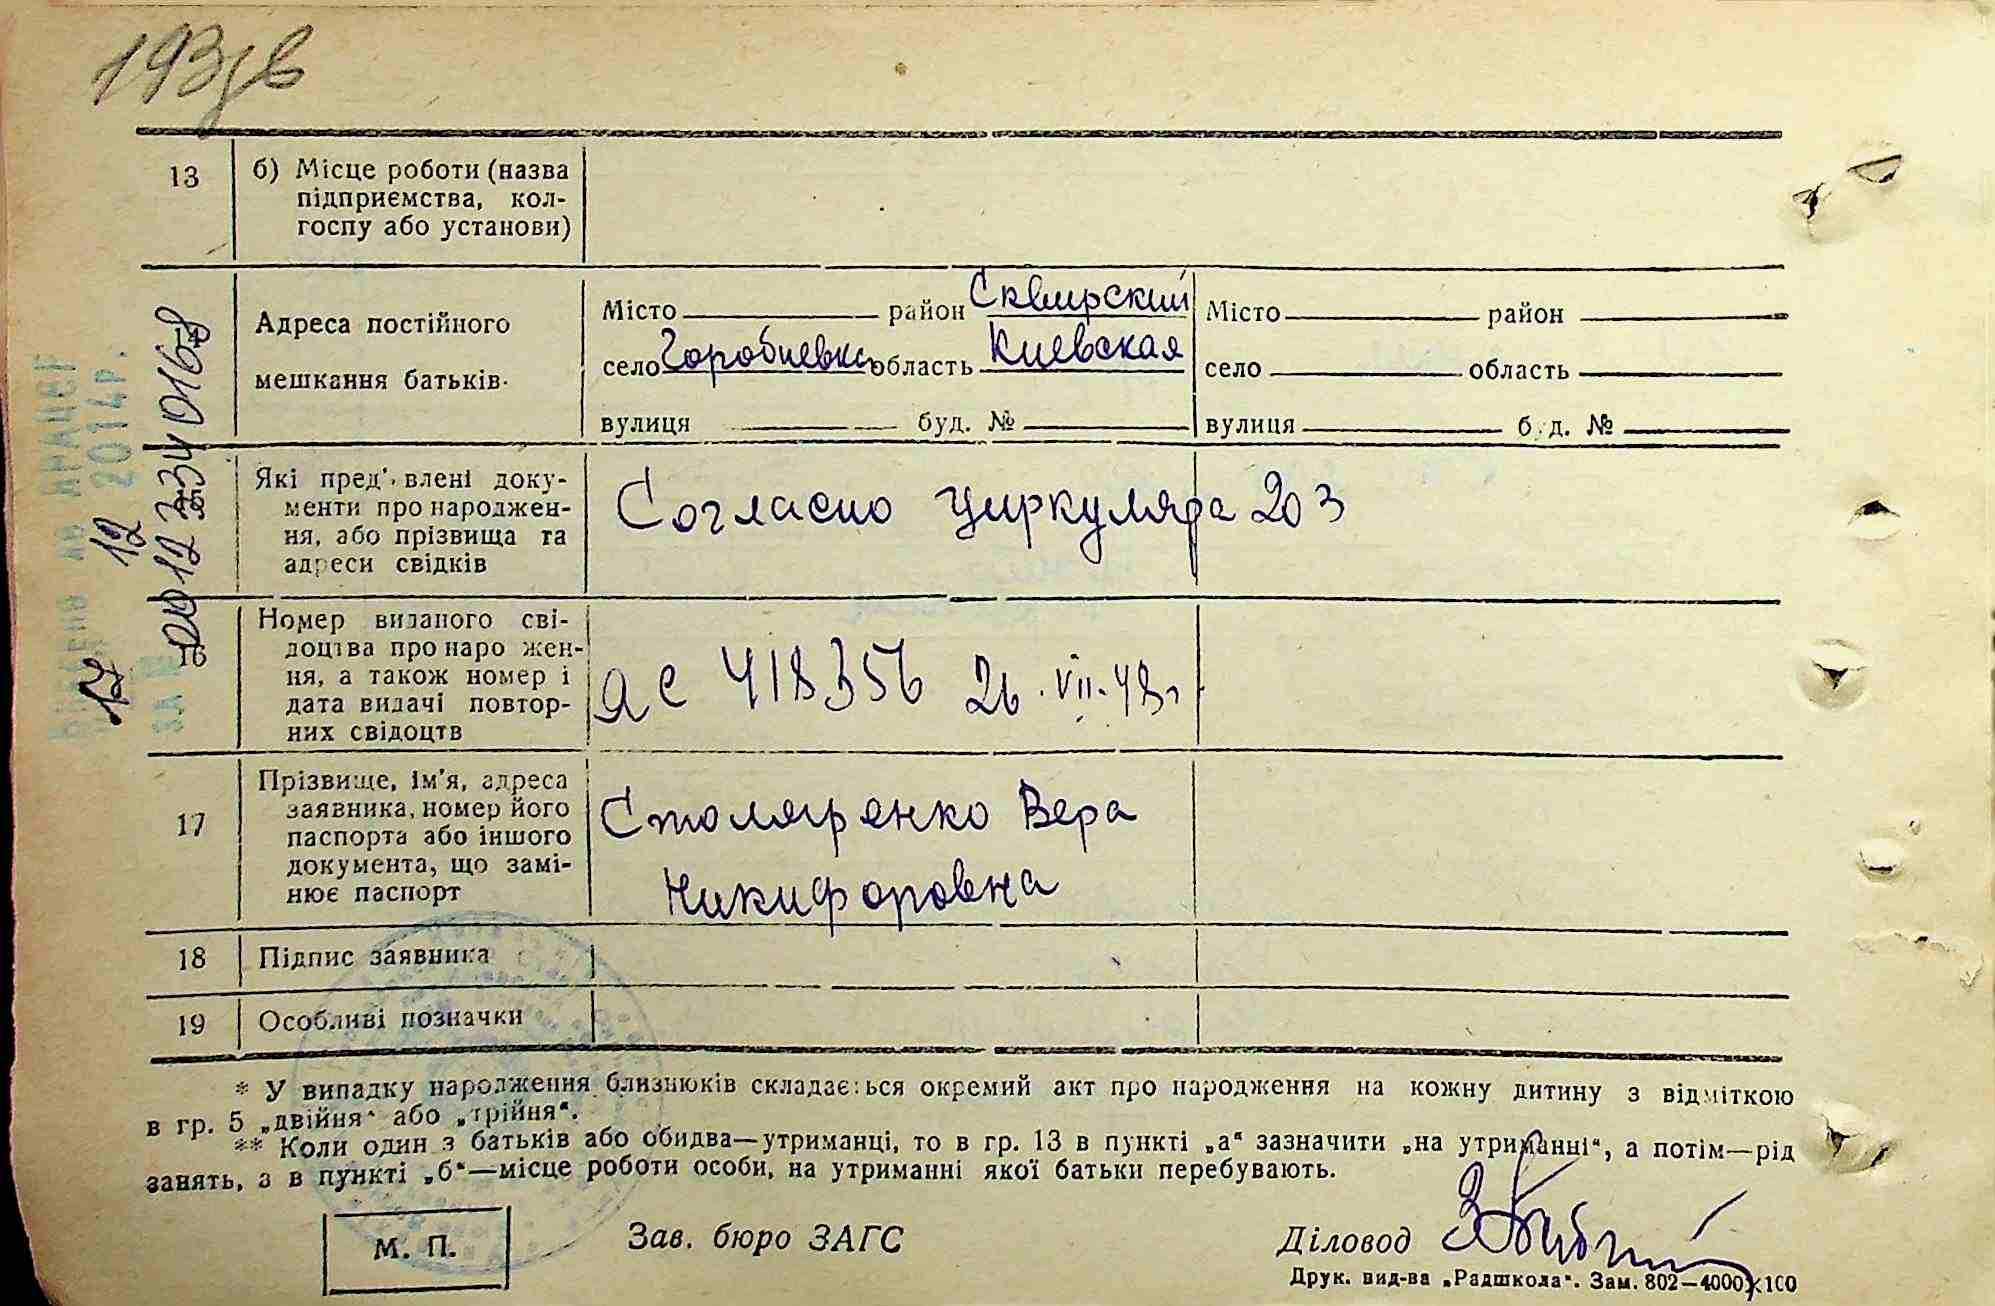 193зв
13 б) Місце роботи (назва
підприємства, кол-
госпу або установи)
Адреса постійного
мешкання батьків.
Місто район Сквирский
село Горобиевка область Киевская
вулиця буд. №
Місто район
село область
вулиця буд. №
Які пред'явлені доку-
менти про народжен-
ня, або прізвища та
адреси свідків
Согласно циркуляра 203
16 Номер виданого сві-
доцтва про народжен-
ня, а також номер і
дата видачі повтор-
них свідоцтв
ЯС 418356 26.VII.48г
17 Прізвище, ім'я, адреса
заявника, номер його
паспорта або іншого
документа, що замі-
нює паспорт
Столяренко Вера
Никифоровна
18 Підпис заявника
19 Особливі позначки
* У випадку народження близнюків складається окремий акт про народження на кожну дитину з відміткою
в гр. 5 „двійня“ або „трійня“.
** Коли один з батьків або обидва—утриманці, то в гр. 13 в пункті „а“ зазначити „на утриманні“, а потім—рід
занять, а в пункті „б“—місце роботи особи, на утриманні якої батьки перебувають.
М. П.
Зав. бюро ЗАГС
Діловод
Друк. вид-ва „Радшкола“. Зам. 802—4000×100
17 12 2014р.
ЗА № 00127340168